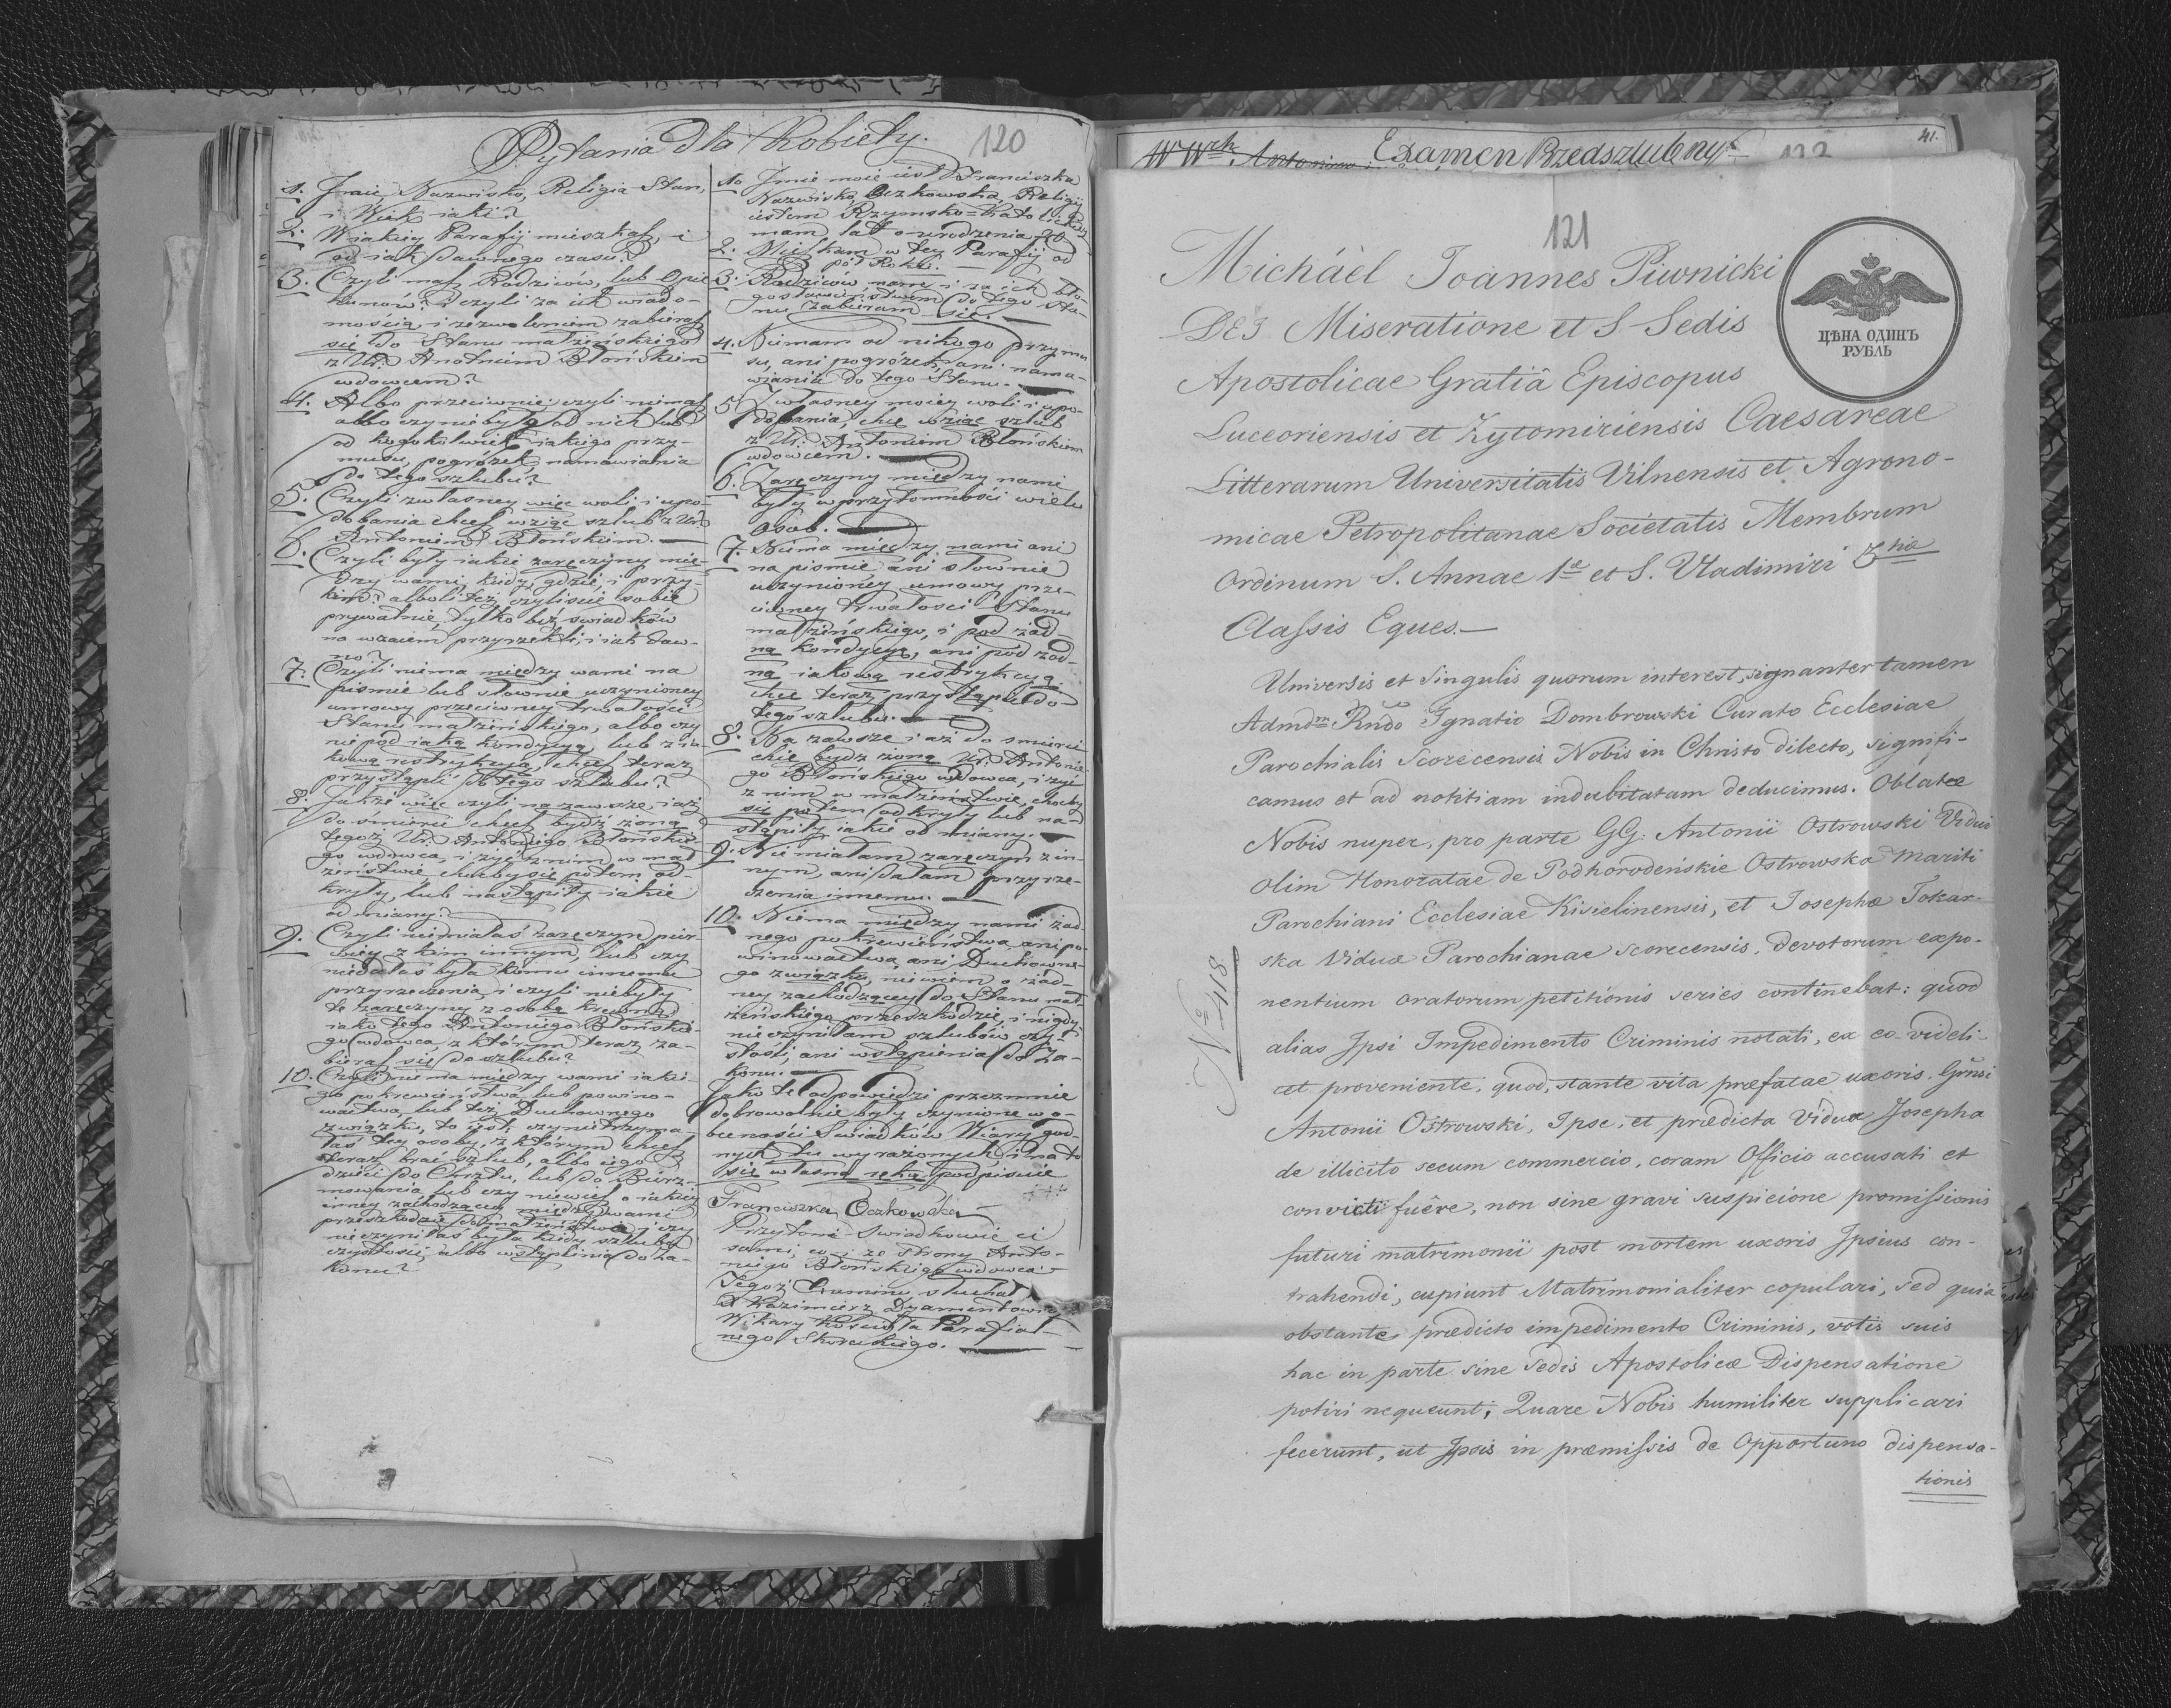 Pytania dla Kobiety.
120
1. Imie, Nazwisko, Religia Stan,
i Wiek iaki?
2. W iakiey Parafij mieszkasz, i
od iak dawnego czasu?
3. Czyli masz Rodziców, lub Opie
kunów? i czyli za ich wiado-
mością i zezwoleniem zabierasz
się do Stanu małżeńskiego
z Ur. Anotnim Błońskim
wdowcem?
4. Albo przeciwnie: czyli nimasz
albo czy niebyło od nich lub
od kogokolwiek iakiego przy-
musu, pogróżek, namawiania
do tego szlubu?
5. Czyli z własney więc woli i upo-
dobania chcesz wziąć szlub z Ur.
Antonim Błońskim.
6. Czyli były iakie zaręczyny mię-
dzy wami, kiedy, gdzie, i przy-
kim? albo li też czyliście sobie
prywatnie, tylko bez świadków
na wzaiem przyrzekli, i iak daw-
no?
7. Czyli niema między wami na
piśmie lub słownie uczynioney
umowy przeciwney trwałości
Stanu małżeńskiego, albo czy
ni pod iaką kondycyą, lub z ia-
kową restrykcyą, chcesz teraz
przystąpić do tego szlubu?
8. Jakże więc czyli na zawsze, i aż
do śmierci chcesz bydź żoną
tegoż Ur. Antoniego Błońskie-
go wdowca, i żyć z nim w mał
żeństwie, chociby się potem od-
kryły, lub nastąpiły iakie
odmiany?
9. Czyli niemiałaś zaręczyn pier-
wiey z kim innym, lub czy
niedałaś była komu innemu
przyrzeczenia, i czyli niebyły
te zaręczyny z osobą krewną
iako tego Antoniego Błońskie-
go wdowca z którym teraz za-
bierasz się do szlubu?
10. Czyli niema między wami iakie-
go pokrewieństwa, lub powino-
wactwa, lub też Duchownego
związku, to iest, czy nietrzyma-
łaś tey osoby, z którym chcesz
teraz brać szlub, albo iego
dzieci do Chrztu, lub do Bierz-
mowania lub czy niewiesz o iakiey
inney zachodzącey między wami
przeszkodzie do małżeństwa, i czy
nieczyniłaś była kiedy szlubu
czystości, albo wstąpienia do Za-
konu?
1o Imie moie iest Franciszka
Nazwisko Oczkowska, Religij
iestem Rzymsko=Katolickiey
mam lat o-urodzenia 20
2. Mieszkam w tey Parafij od
pół Roku.
3. Rodziców mam i za ich bło-
gosławieństwem do tego Sta-
nu zabieram się.
4. Niemam od nikogo przymu
su, ani pogróżek, ani nama-
wiania do tego Stanu.
5. Z własney moiey woli i upo-
dobania, chcę wziąć szlub
z Ur. Antonim Błońskiem
wdowcem.
6. Zaręczyny między nami
były w przytomności wielu
osob.
7. Niema między nami ani
na piśmie ani słownie
uczynioney umowy prze-
ciwney trwałości Stanu
małżeńskiego, i pod żad-
ną kondycyą, ani pod żad-
ną iakową restrykcyą
chcę teraz przystąpić do
tego szlubu.
8. Na zawsze i aż do śmierci
chcę bydź żoną Ur. Antonie-
go Błońskiego wdowca, i żyć
z nim w małżeństwie, choćby
się potem odkryły lub na-
stąpiły iakie odmiany.
9. Nie miałam zaręczyn z in-
nym, ani dałam przyrze-
czenia innemu.
10. Niema między nami żad-
nego pokrewieństwa, ani po-
winowactwa, ani Duchowne-
go związku, niewiem o żad-
ney zachodzącey do Stanu mał-
żeńskiego przeszkodzie, i nigdy
nieczyniłam szlubów czy-
stości, ani wstąpienia do Za-
konu.
Jako te odpowiedzi przezemnie
dobrowolnie były czynione w o-
becności Swiadków Wiary god-
nych tu wyrażonych i na to
się własną ręką podpisuie
+++
Franciszka Oczkowska
Przytomni Swiadkowie ci
sami, co i ze strony Anto-
niego Błońskiego wdowca
Tegoż Examinu słuchał
X Kazimierz Dyamentowicz
Wikary Kościoła Parafial-
nego Skoreckiego.
Examen Przedszlubny
41.
121
Michaël Joannes Piwnicki
DEI Miseratione et S Sedis
Apostolicae Gratiâ Episcopus
Luceoriensis et Zytomiriensis Caesareae
Litterarum Universitatis Vilnensis et Agrono-
micae Petropolitanae Societatis Membrum
Ordinum S. Annae 1ae et S. Vladimiri 3tiae
Classis Eques.
ЦѢНА ОДИНЪ
РУБЛЬ
Universis et Singulis quorum interest, signanter tamen
Admdm Rndo Ignatio Dombrowski Curato Ecclesiae
Parochialis Scorecensis Nobis in Christo dilecto, signifi-
camus et ad notitiam indubitatam deducimus. Oblatae
Nobis nuper, pro parte GG: Antonii Ostrowski Vidui
olim Honoratae de Podhorodeńskie Ostrowska Mariti
Parochiani Ecclesiae Kisielinensis, et Josephae Tokar-
ska Viduae Parochianae Scorecensis, devotorum expo-
nentium oratorum petitionis series continebat: quod
alias Ipsi Impedimento Criminis notati, ex eo videli-
cet proveniente, quod, stante vita praefatae uxoris, Grnsi
Antonii Ostrowski, Ipse, et praedicta Vidua Josepha
de illicito secum commercio, coram Officio accusati et
convicti fuêre, non sine gravi suspicione promissionis
futuri matrimonii post mortem uxoris Ipsius con-
trahendi, cupiunt Matrimonialiter copulari, sed quia
obstante praedicto impedimento Criminis, votis suis
hac in parte sine Sedis Apostolicae Dispensatione
potiri nequeunt; Quare Nobis humiliter supplicari
fecerunt, ut Ipsis in praemissis de Opportuno dispensa-
tionis
N 418